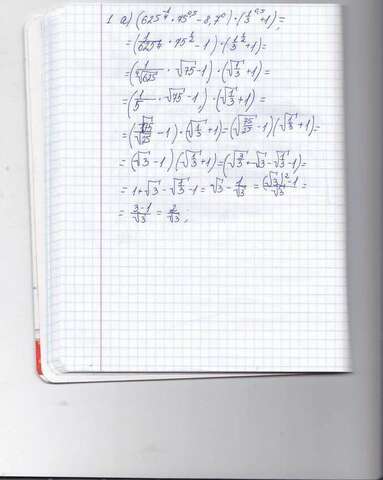 1. а) (625^(-1/4) · 75^0,5 - 8,7^0) · (1/3^0,5 + 1) =
= (1/625^(1/4) · 75^(1/2) - 1) · (1/3^(1/2) + 1) =
= (1/⁴√625 · √75 - 1) · (√(1/3) + 1) =
= (1/5 · √75 - 1) · (√(1/3) + 1) =
= (√75/√25 - 1) · (√(1/3) + 1) = (√(75/25) - 1)(√(1/3) + 1) =
= (√3 - 1)(√(1/3) + 1) = (√(3/3) + √3 - √(1/3) - 1) =
= 1 + √3 - √(1/3) - 1 = √3 - 1/√3 = ((√3)² - 1)/√3 =
= (3 - 1)/√3 = 2/√3 ;